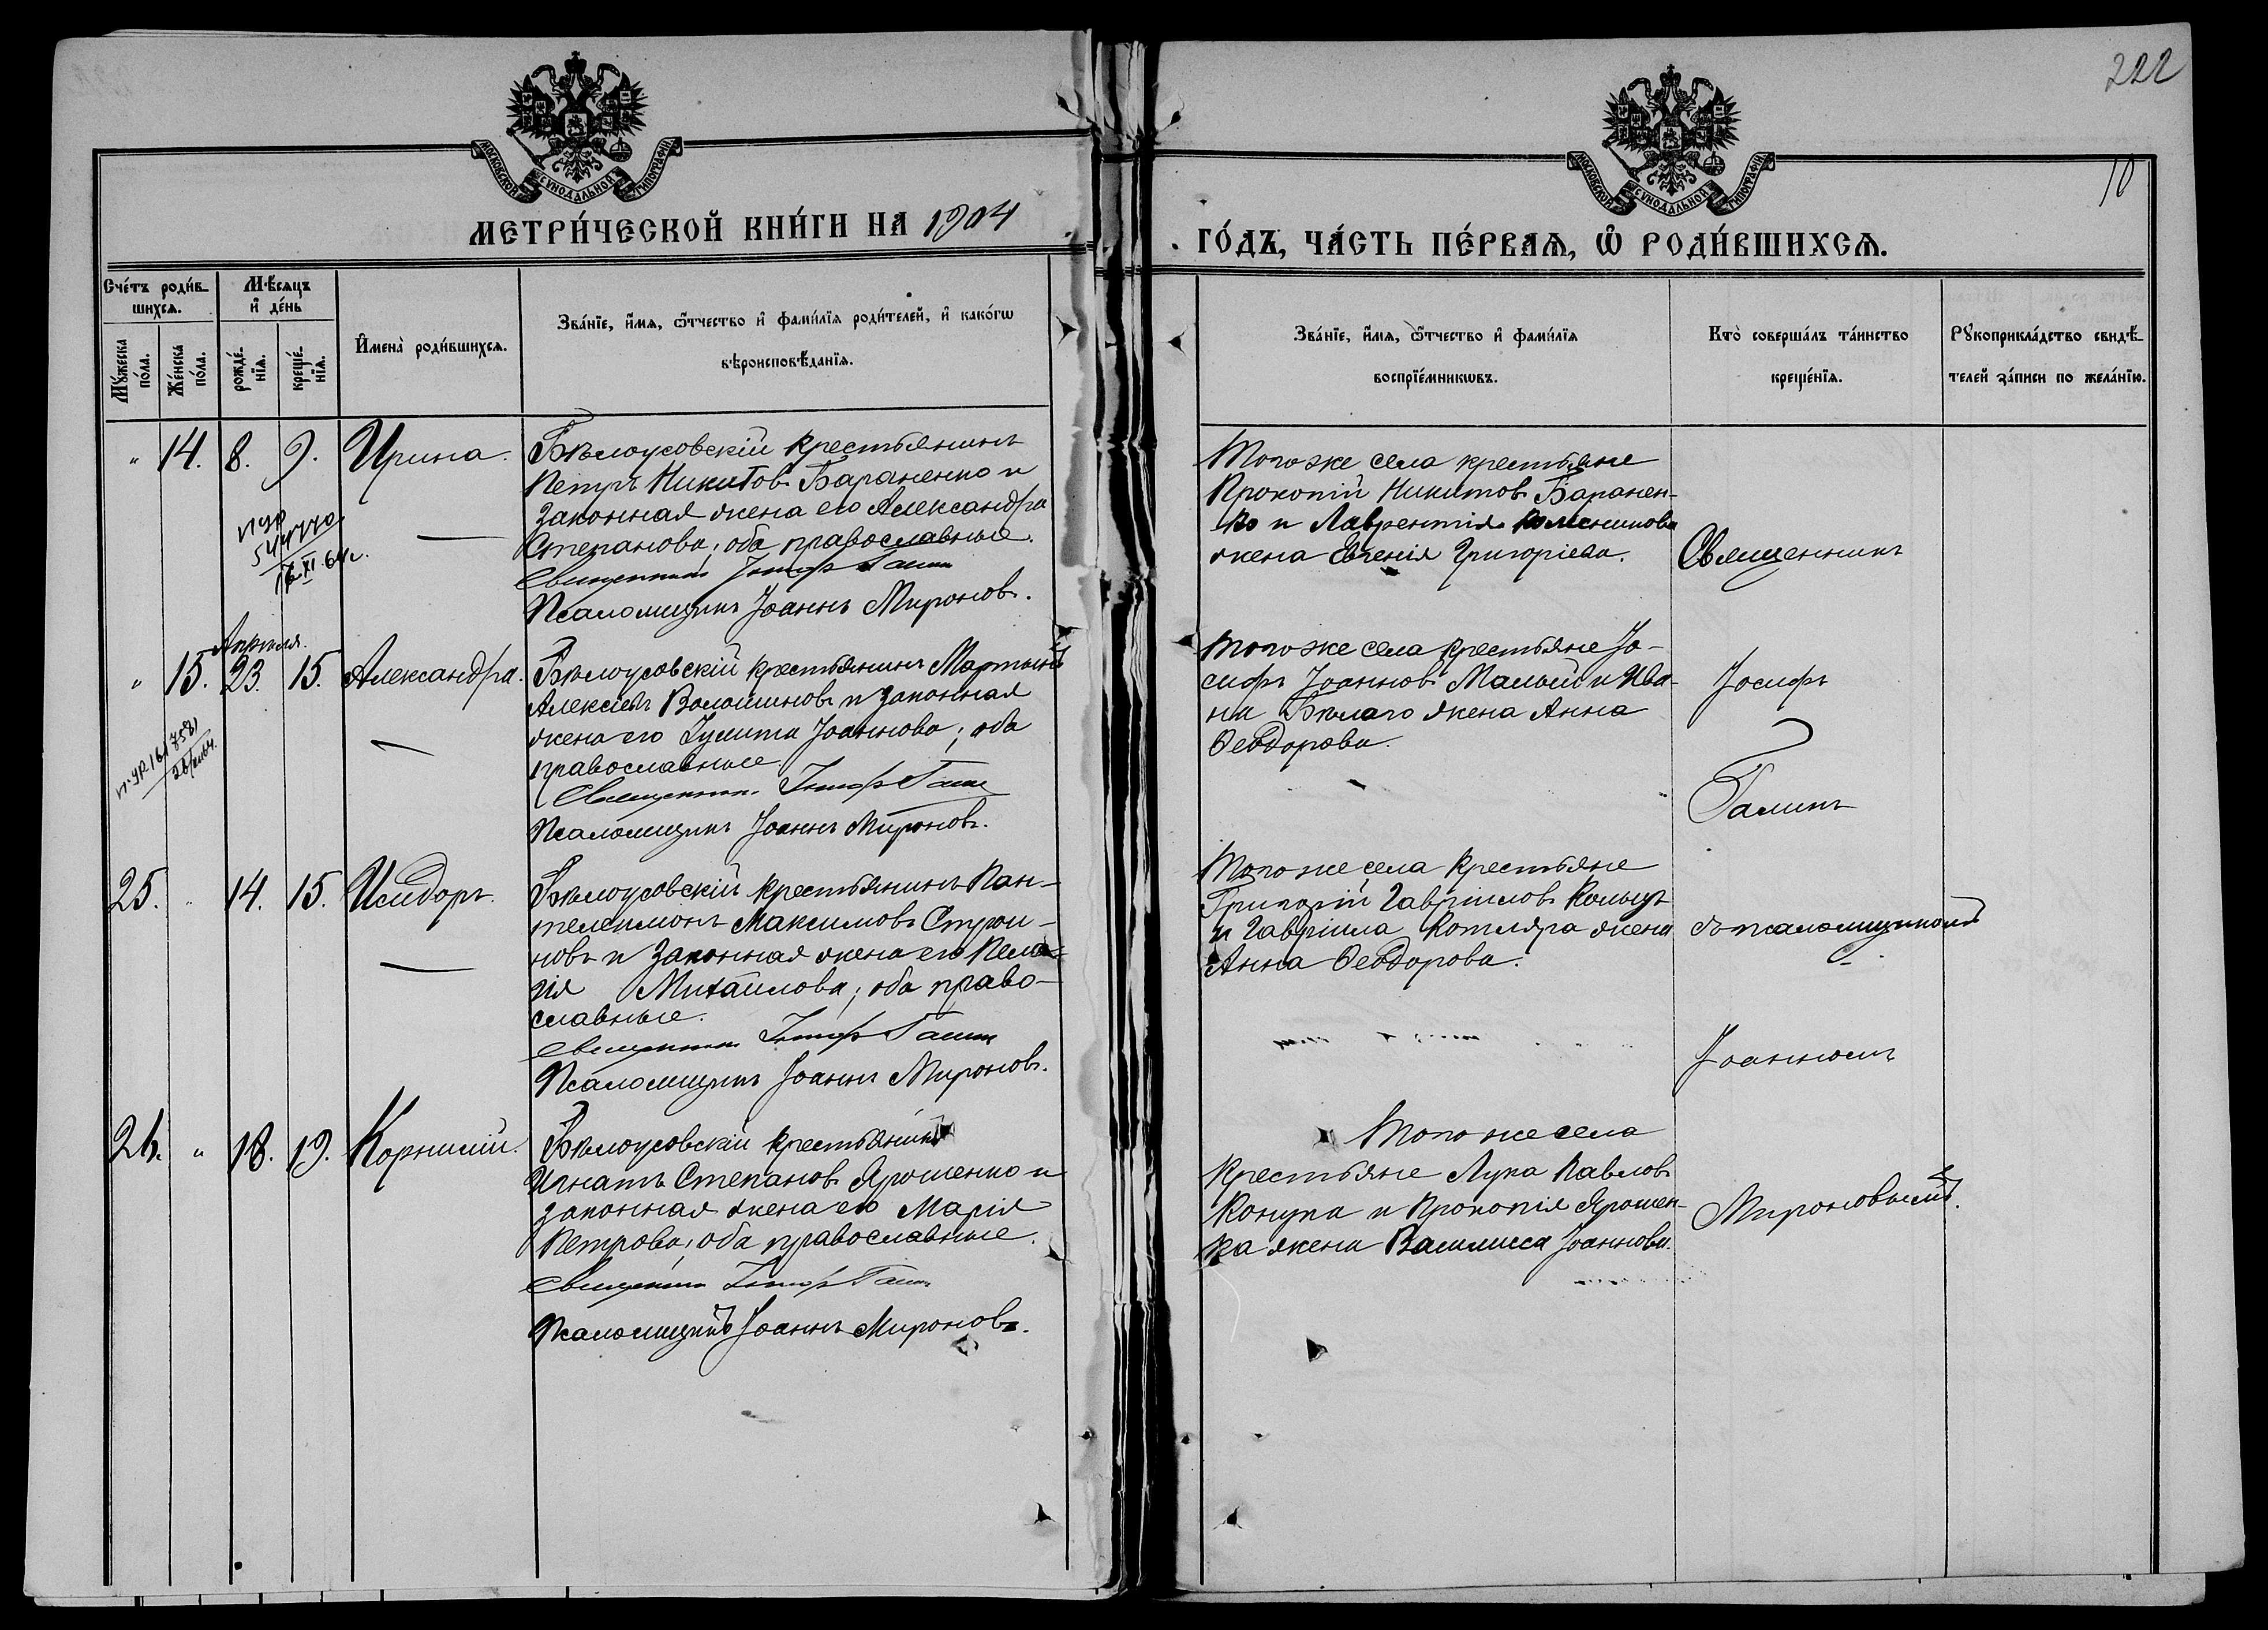 222
10
МОСКОВСКОЙ СѴНОДАЛЬНОЙ ТИПОГРАФІИ
МОСКОВСКОЙ СѴНОДАЛЬНОЙ ТИПОГРАФІИ
МЕТРИ́ЧЕСКОЙ КНИ́ГИ НА 1904
ГО́ДЪ, ЧА́СТЬ ПЕ́РВАѦ, Ѡ РОДИ́ВШИХСѦ.
Сче́тъ роди́в-
шихсѧ.
Мꙋ́жеска
по́ла.
Же́нска
по́ла.
Мѣ́сѧцъ
и҆ де́нь
рожде́-
нїѧ.
креще́-
нїѧ.
И҆мена̀ роди́вшихсѧ.
Зва́нїе, и҆́мѧ, ѻ҆́тчество и҆ фами́лїѧ роди́телей, и҆ како́гѡ
вѣроисповѣ́данїѧ.
Зва́нїе, и҆́мѧ, ѻ҆́тчество и҆ фами́лїѧ
воспрїе́мникѡвъ.
Кто̀ соверша́лъ та́инство
креще́нїѧ.
Рꙋкоприкла́дство свидѣ́-
телей за́писи по жела́нїю.
" 14. 8. 9. Ирина.
Бѣлоусовскій крестьянинъ
Петръ Никитовъ Бараненко и
законная жена его Александра
Степанова; оба православные.
Священникъ Іосифъ Галинъ
Псаломщикъ Іоаннъ Мироновъ.
Того же села крестьяне
Прокопій Никитовъ Баранен-
ко и Лаврентія
жена Евгенія Григоріева.
Священникъ
Апрѣля.
" 15. 23. 15. Александра.
Бѣлоусовскій крестьянинъ Мартинъ
Алексѣевъ Волошиновъ и законная
жена его Іулита Іоаннова; оба
православные.
Священникъ Іосифъ Галинъ
Псаломщикъ Іоаннъ Мироновъ.
Того же села крестьяне Іо-
сифъ Іоанновъ Малый и Ива-
на Бѣлаго жена Анна
Ѳеодорова.
Іосифъ
Галинъ
25. " 14. 15. Исидоръ.
Бѣлоусовскій крестьянинъ Пан-
телеимонъ Максимовъ Строи-
новъ и законная жена его Пела-
гія Михаилова; оба право-
славные.
Священникъ Іосифъ Галинъ
Псаломщикъ Іоаннъ Мироновъ.
Того же села крестьяне
Григорій Гавріиловъ Кольцъ
и Гавріила Котляра жена
Анна Ѳеодорова.
съ псаломщикомъ
Іоанномъ
26. " 18. 19. Корнилій.
Бѣлоусовскій крестьянинъ
Игнатъ Степановъ Ярошенко и
законная жена его Марія
Петрова; оба православные.
Священникъ Іосифъ Галинъ
Псаломщикъ Іоаннъ Мироновъ.
Того же села
крестьяне Лука Павловъ
Конупа и Прокопія Ярошен-
ка жена Василисса Іоаннова.
Мироновымъ.